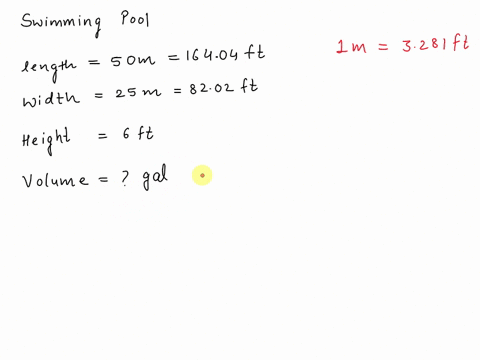 Swimming Pool
1m = 3.281 ft
length = 50m = 164.04 ft
width = 25 m = 82.02 ft
Height = 6 ft
Volume = ? gal